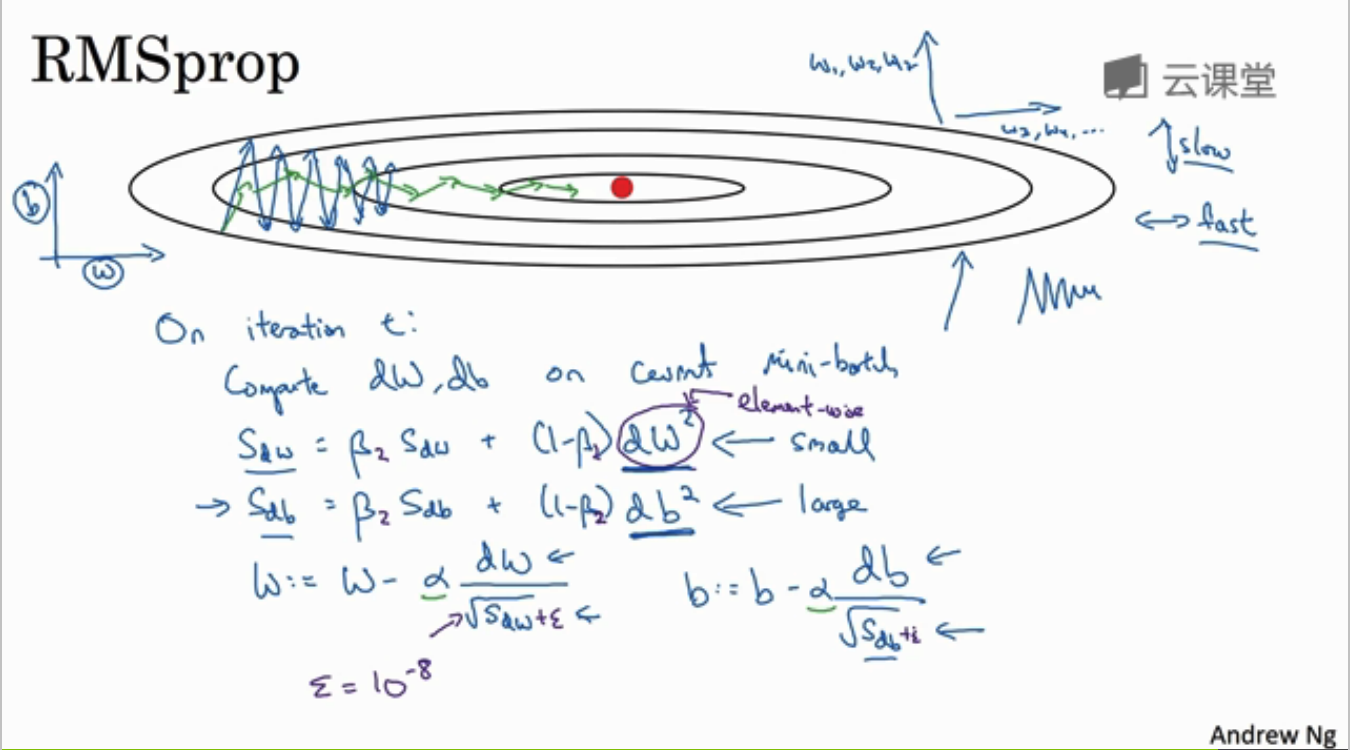 RMSprop
w₁, w₂, w₂
云课堂
w₃, w₄, ...
↕ slow
↔ fast
b
w
On iteration t:
Compute dW, db on current mini-batch
element-wise
S_dw = β₂ S_dw + (1-β₂) dW² ← small
→ S_db = β₂ S_db + (1-β₂) db² ← large
W := W - α dW / √S_dw + ε ←
b := b - α db / √S_db + ε ←
ε = 10⁻⁸
Andrew Ng